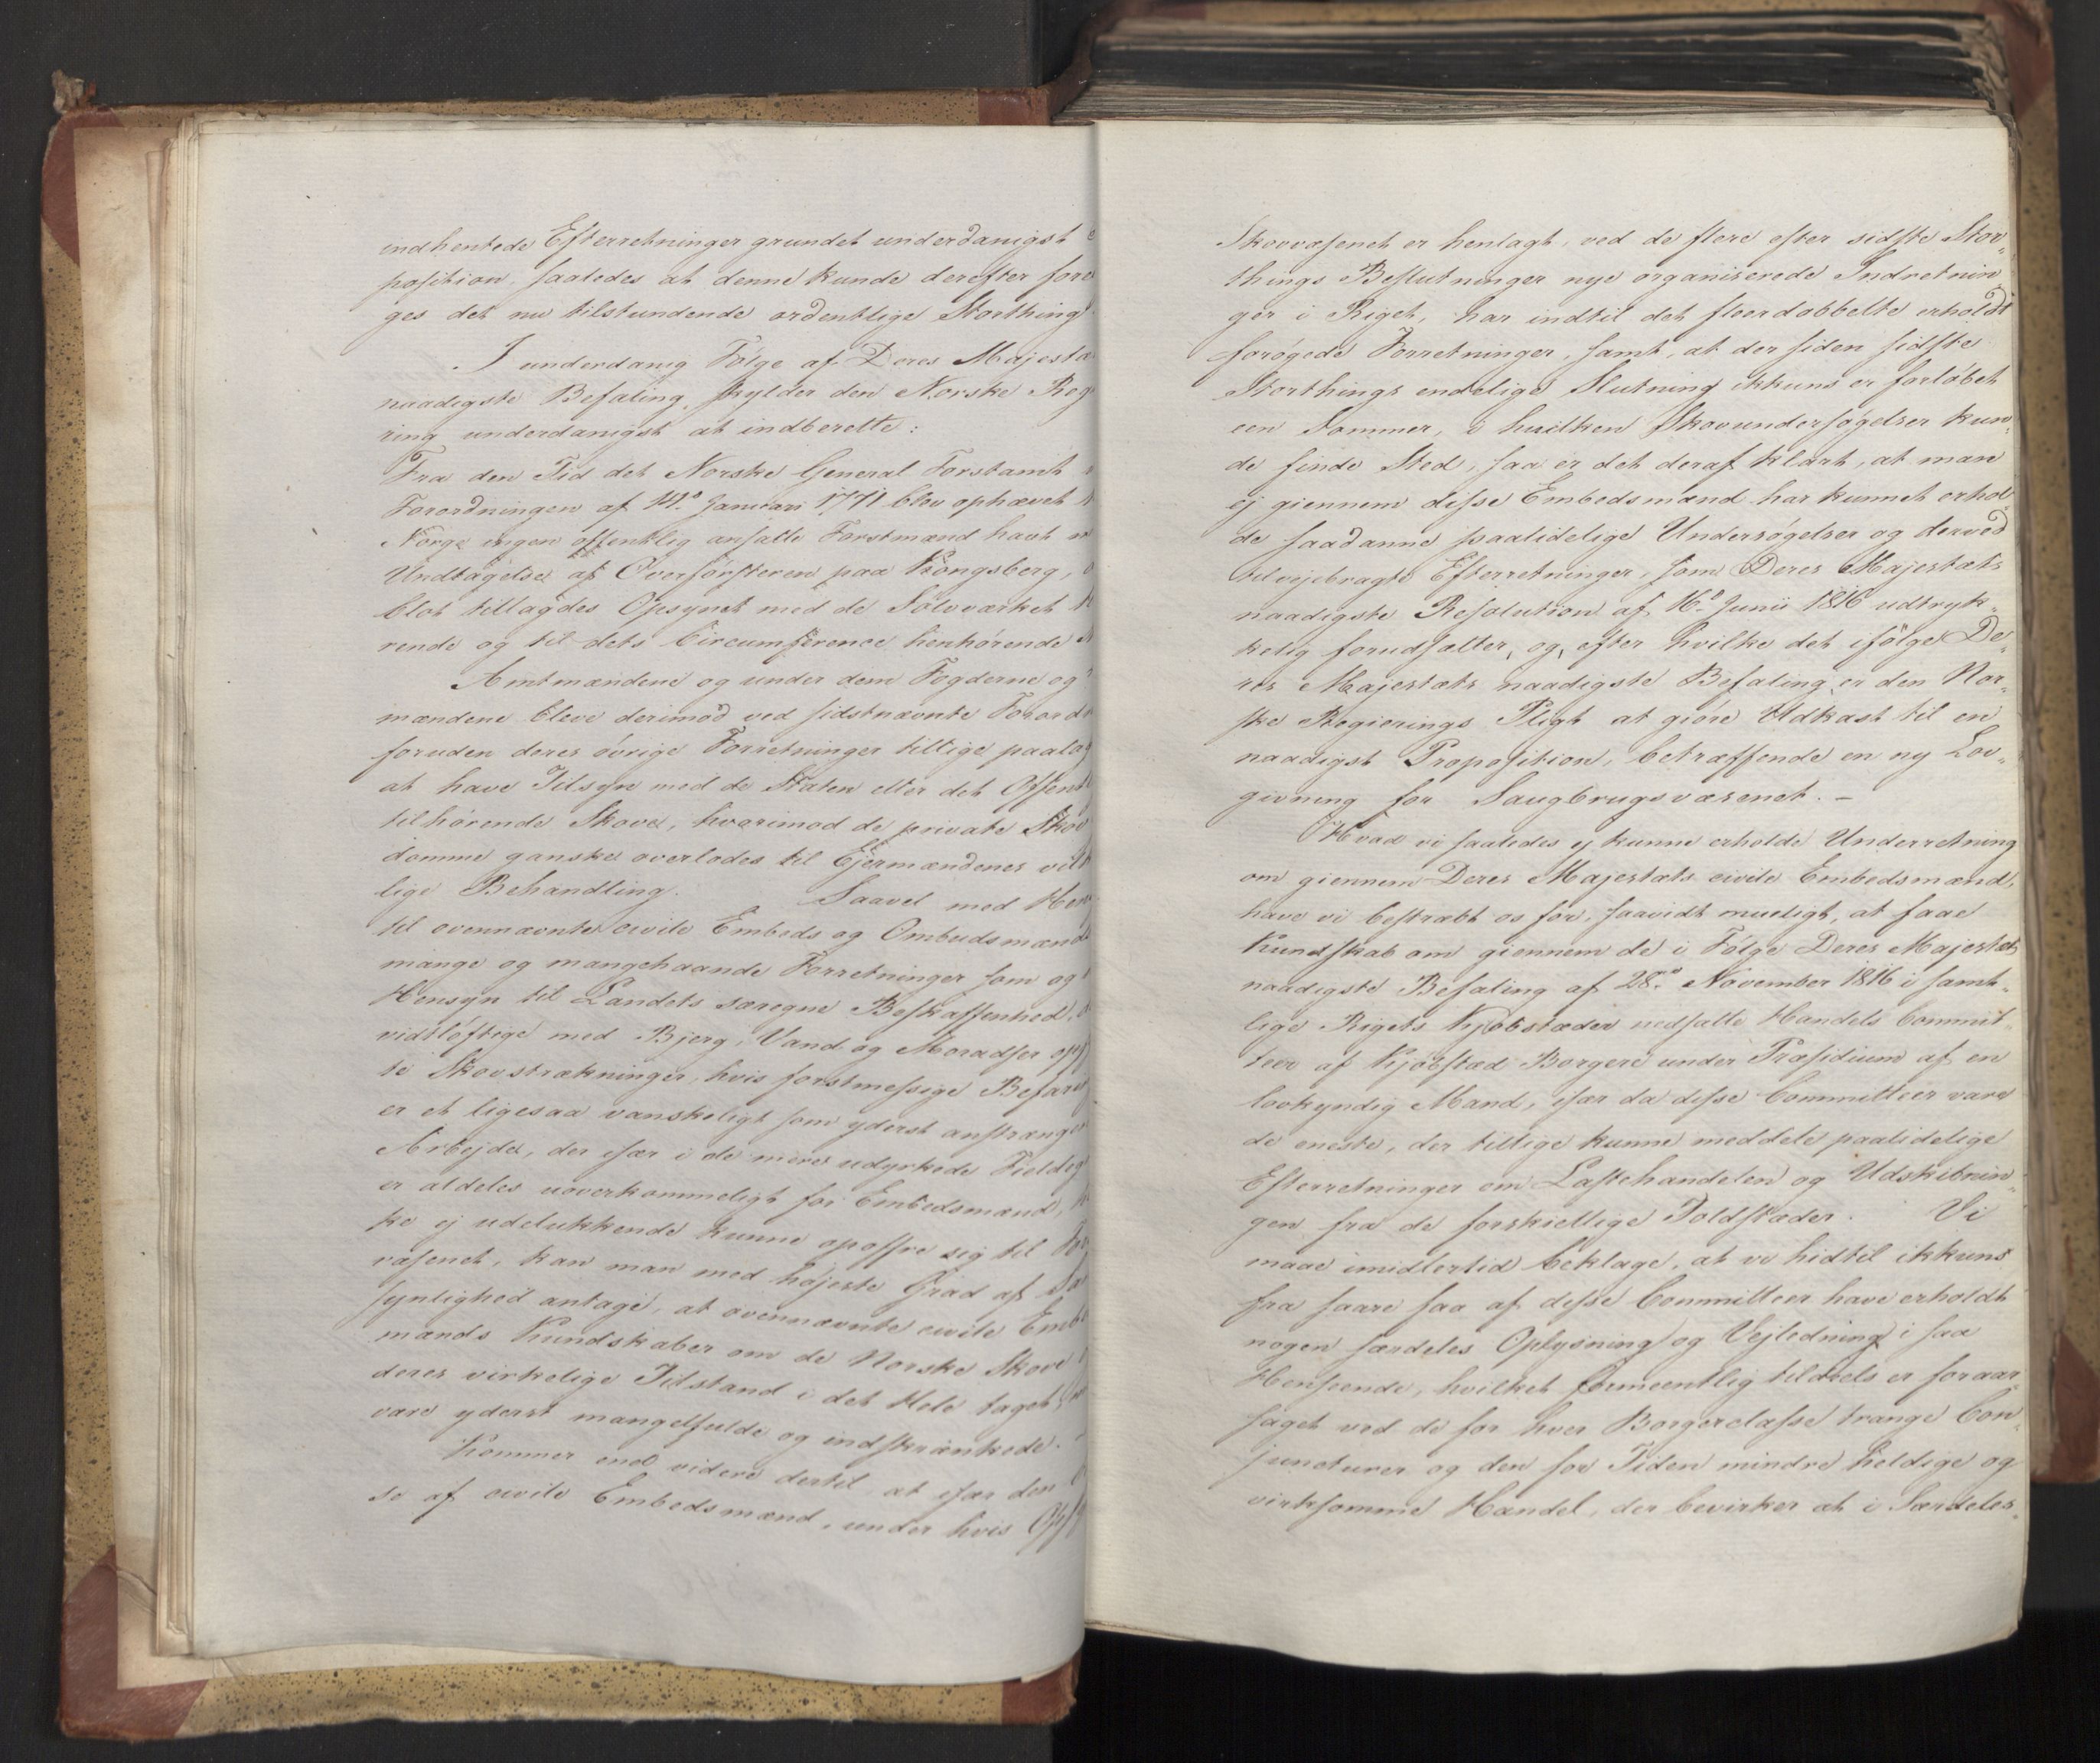 indhentede Efterretninger grundet underdanigst
position, saaledes at denne kunde derefter fore
ges det nu tilstundende ordentlige Storthing
I underdanig Følge af Deres Majestæ
naadigste Befaling, skylder den Norske Reg
ring underdanigst at indberette:
Fra den Tid det Norske General Forstamt
Forordningen af 14.º Januari 1771 blev ophævet
Norge ingen offentlig ansatte Forstmænd havt
Undtagelse af Overførsteren paa Kongsberg,
blot tillagdes Opsynet med de Sølvværket
rende og til dets Circumference henhørende
Amtmændene og under dem Fogderne og
mændene bleve derimod ved sidstnævnte Forord
foruden deres øvrige Forretninger tillige paalag
at have Tilsyn med de Staten eller det Offentl
tilhørende Skove, hvorimod de private Skov
domme ganske overlodes til Ejermændenes vilk
lige Behandling. Saavel med Hen
til ovennævnte civile Embeds og Ombudsmænds
mange og mangehaande Forretninger som og
Hensyn til Landets særegne Beskaffenhed,
vidtløftige med Bjerg, Vand og Moradser opfyl
te Skovstrækninger, hvis forstmessige Befaring
er et ligesaa vanskeligt som yderst anstrængen
Arbejde, der især i de mere udyrkede Fieldeg
er aldeles uoverkommeligt for Embedsmænd,
ke ej udelukkende kunne opoffre sig til For
væsenet, kan man med højeste Grad af San
synlighed antage, at ovennævnte civile Embe
mænds Kundskaber om de Norske Skove
deres virkelige Tilstand i det Hele taget,
være yderst mangelfulde og indskrænkede. –
Kommer end videre dertil at især den
se af civile Embedsmænd, under hvis Opsy
Skovvæsenet er henlagt, ved de flere efter sidste Stor„
things Beslutninger nye organiserede Indretnin„
ger i Riget, har indtil det fleerdobbelte erholdt
forøgede Forretninger, samt, at der siden sidste
Storthings endelige Slutning ikkuns er forløbet
een Sommer, i hvilken Skovundersøgelser kun„
de finde Sted, saa er det deraf klart, at man
ej giennem disse Embedsmænd har kunnet erhol„
de saadanne paalidelige Undersøgelser og derved
tilvejebragte Efterretninger, som Deres Majestæts
naadigste Resolution af 16.º Junii 1816 udtryk„
kelig forudsætter, og efter hvilke det ifølge De„
res Majestæts naadigste Befaling er den Nor„
ske Regierings Pligt at giøre Udkast til en
naadigst Proposition, betræffende en ny Lov„
givning for Saugbrugsvæsenet. –
Hvad vi saaledes ej kunne erholde Underretning
om giennem Deres Majestæts civile Embedsmænd,
have vi bestræbt os for, saavidt mueligt, at faae
Kundskab om giennem de i Følge Deres Majestæts
naadigste Befaling af 28.º November 1816 i samt„
lige Rigets Kjøbstæder nedsatte Handels Commit„
teer af Kjøbstæd Borgere under Præsidium af en
lovkyndig Mand, især da disse Committeer vare
de eneste, der tillige kunne meddele paalidelige
Efterretninger om Lastehandelen og Udskibnin„
gen fra de forskiellige Toldstæder. Vi
maae imidlertid beklage, at vi hidtil ikkuns
fra saare faa af disse Committeer have erholdt
nogen særdeles Oplysning og Vejledning i saa
Henseende, hvilket formeentlig tildeels er foraar„
saget ved de for hver Borgerclasse trange Con„
juncturer og den for Tiden mindre heldige og
virksomme Handel, der bevirker at i Særdeles„